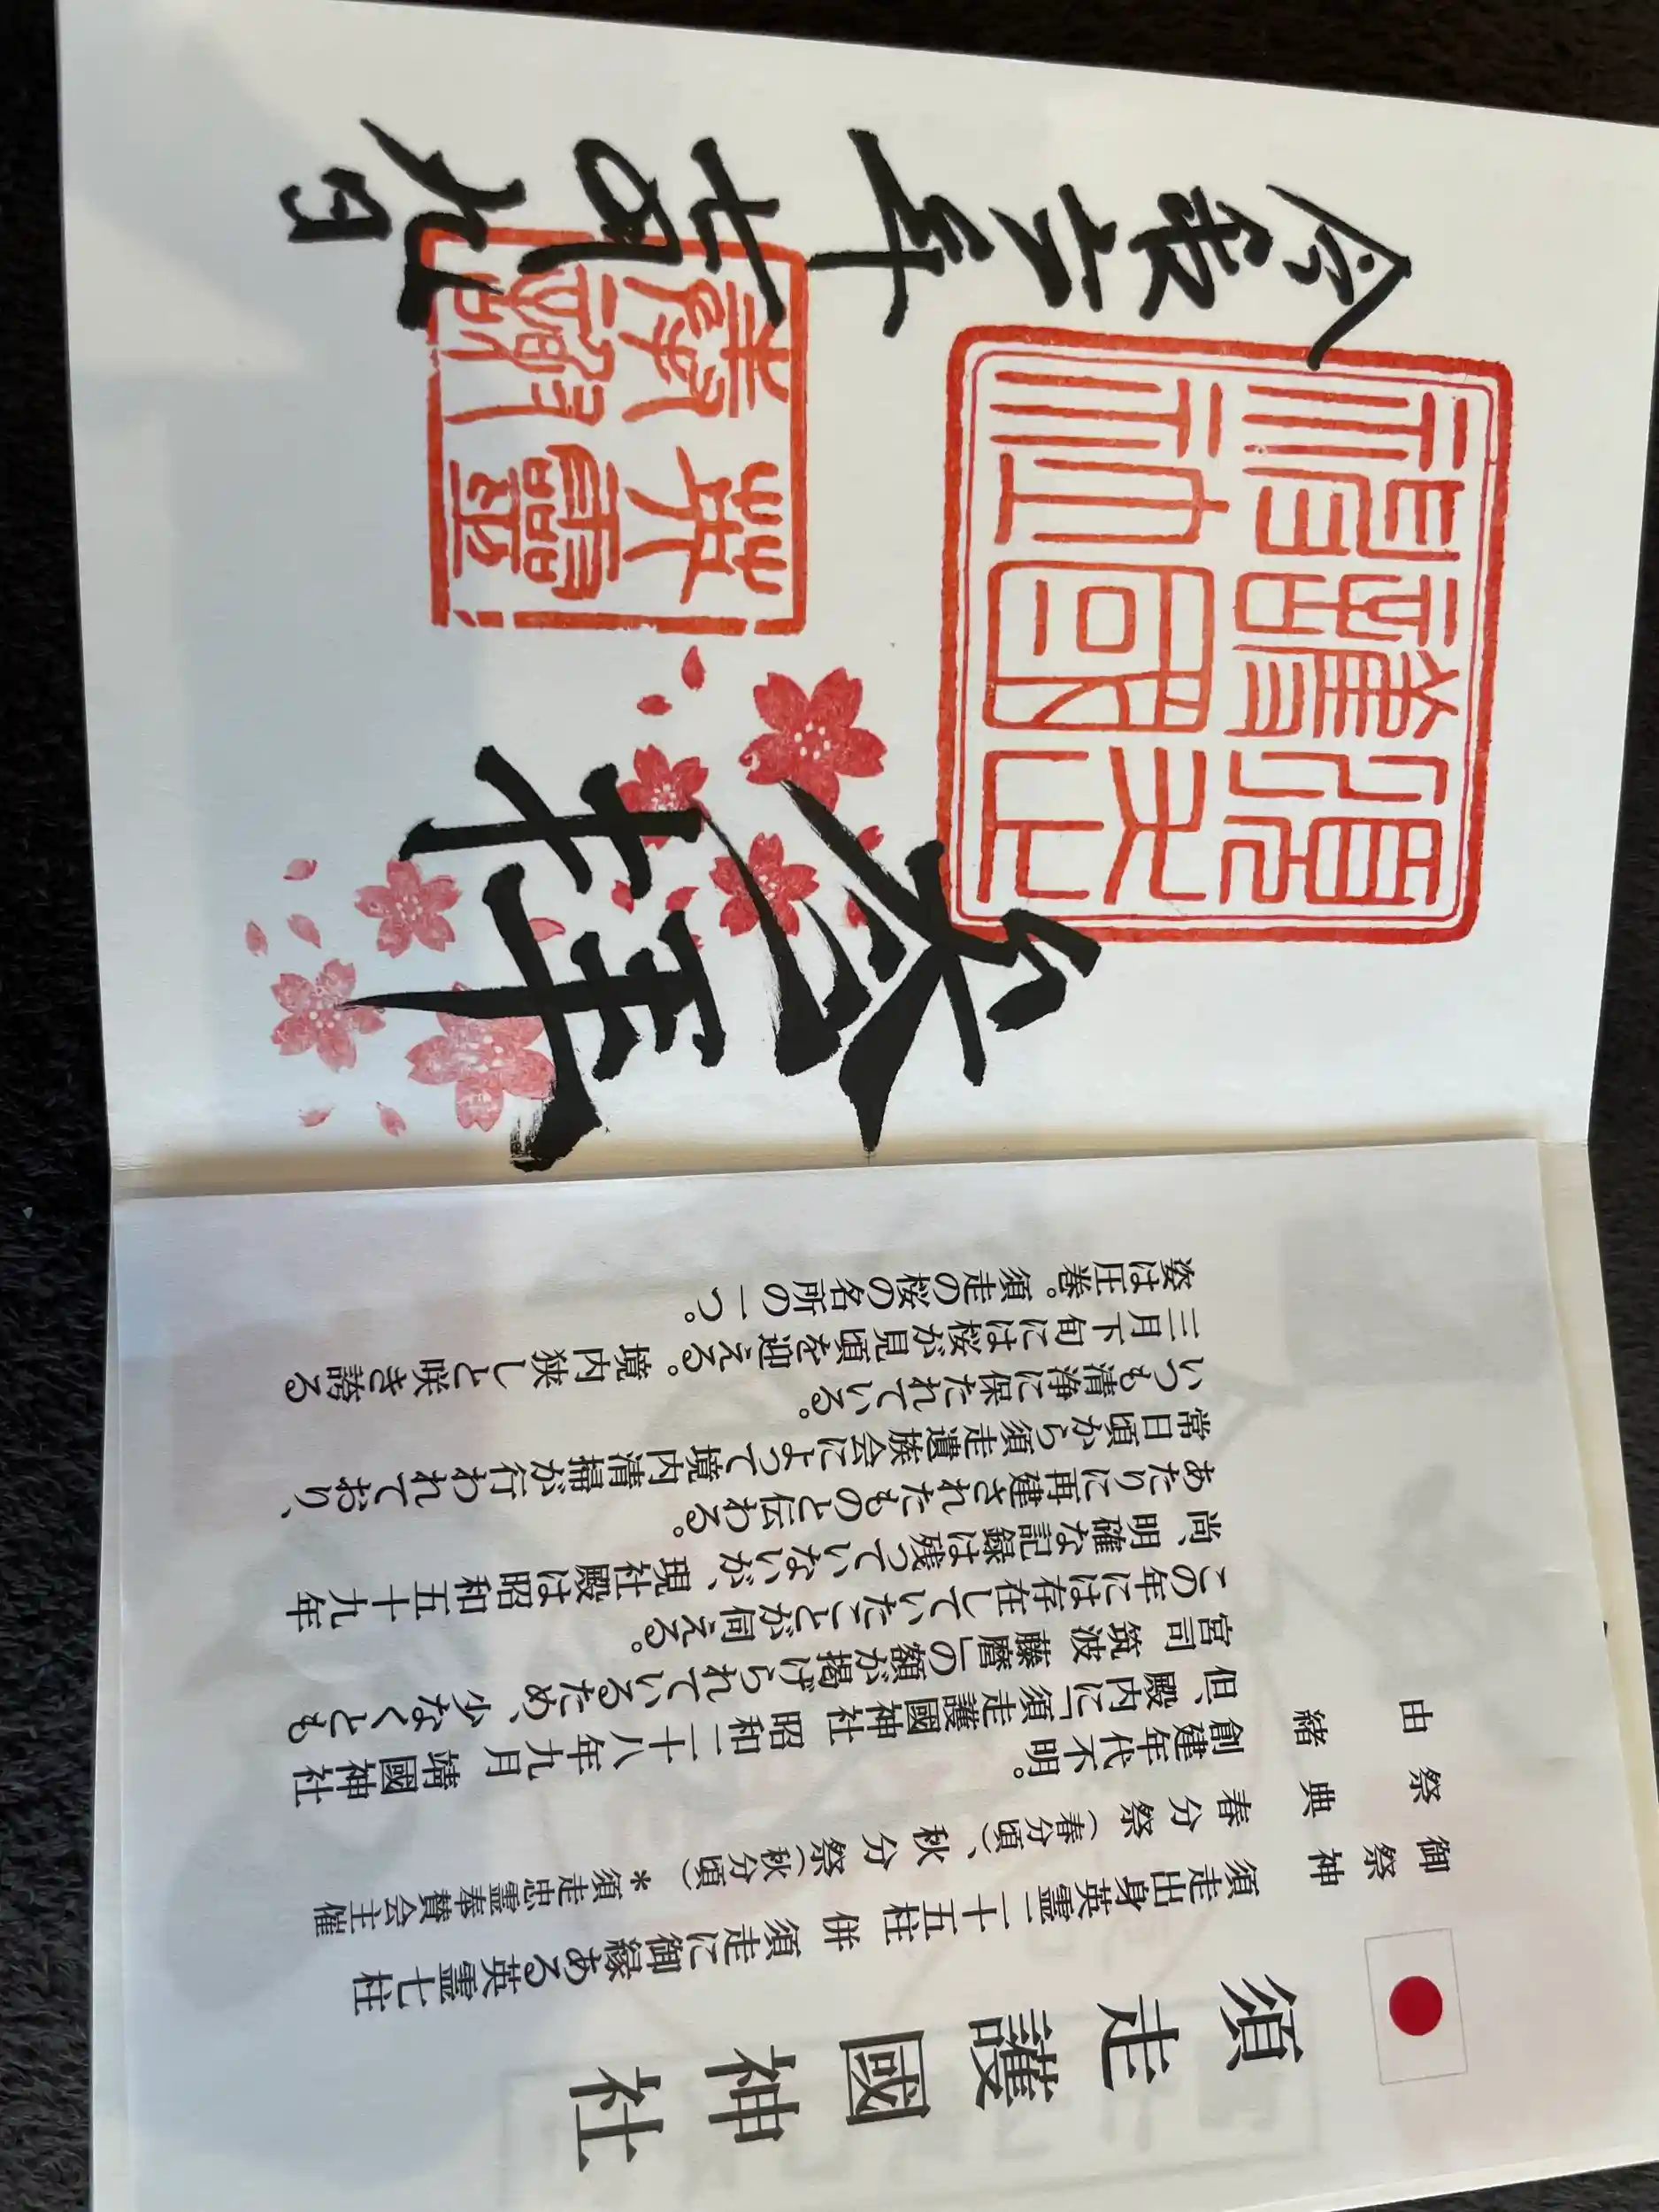 須走護國神社
御祭神
須走出身英霊二十五柱 併 須走に御縁ある英霊七柱
祭典
春分祭(春分頃)、秋分祭(秋分頃) *須走忠霊奉賛会主催
由緒
創建年代不明。
但、殿内に「須走護國神社 昭和二十八年九月 靖國神社
宮司 筑波 藤麿」の額が掲げられているため、少なくとも
この年には存在していたことが伺える。
尚、明確な記録は残っていないが、現社殿は昭和五十九年
あたりに再建されたものと伝わる。
常日頃から須走遺族会によって境内清掃が行われており、
いつも清浄に保たれている。
三月下旬には桜が見頃を迎える。境内狭しと咲き誇る
姿は圧巻。須走の桜の名所の一つ。
参拝
英霊
令和六年